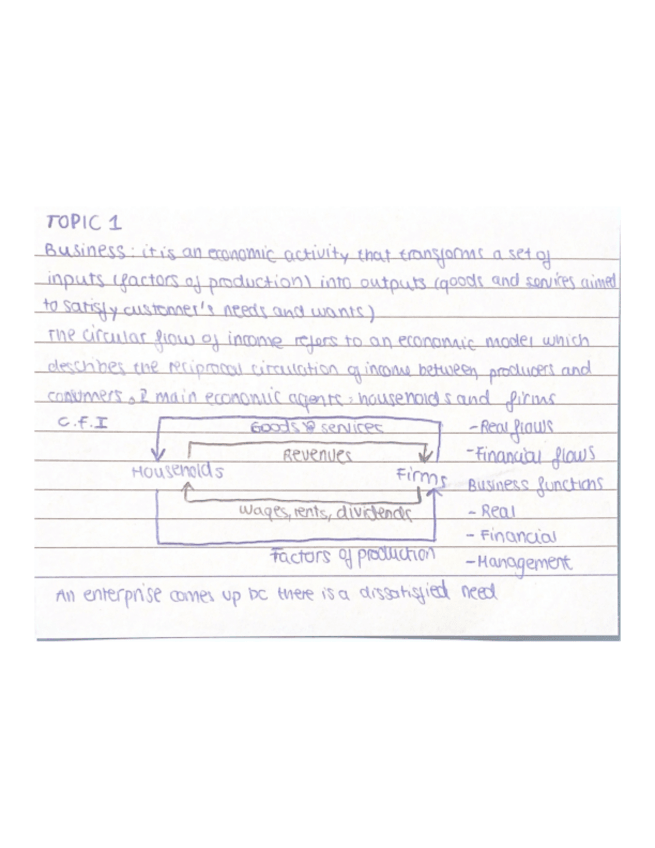 TOPIC 1
Business: it is an economic activity that transforms a set of
inputs (factors of production) into outputs (goods and services aimed
to satisfy customer's needs and wants)
The circular flow of income refers to an economic model which
describes the reciprocal circulation of income between producers and
consumers. 2 main economic agents: households and firms
C.F.I
Goods & services
- Real flows
Revenues
- Financial flows
Households
Firms
Business functions
Wages, rents, dividends
- Real
- Financial
Factors of production
- Management
An enterprise comes up bc there is a dissatisfied need